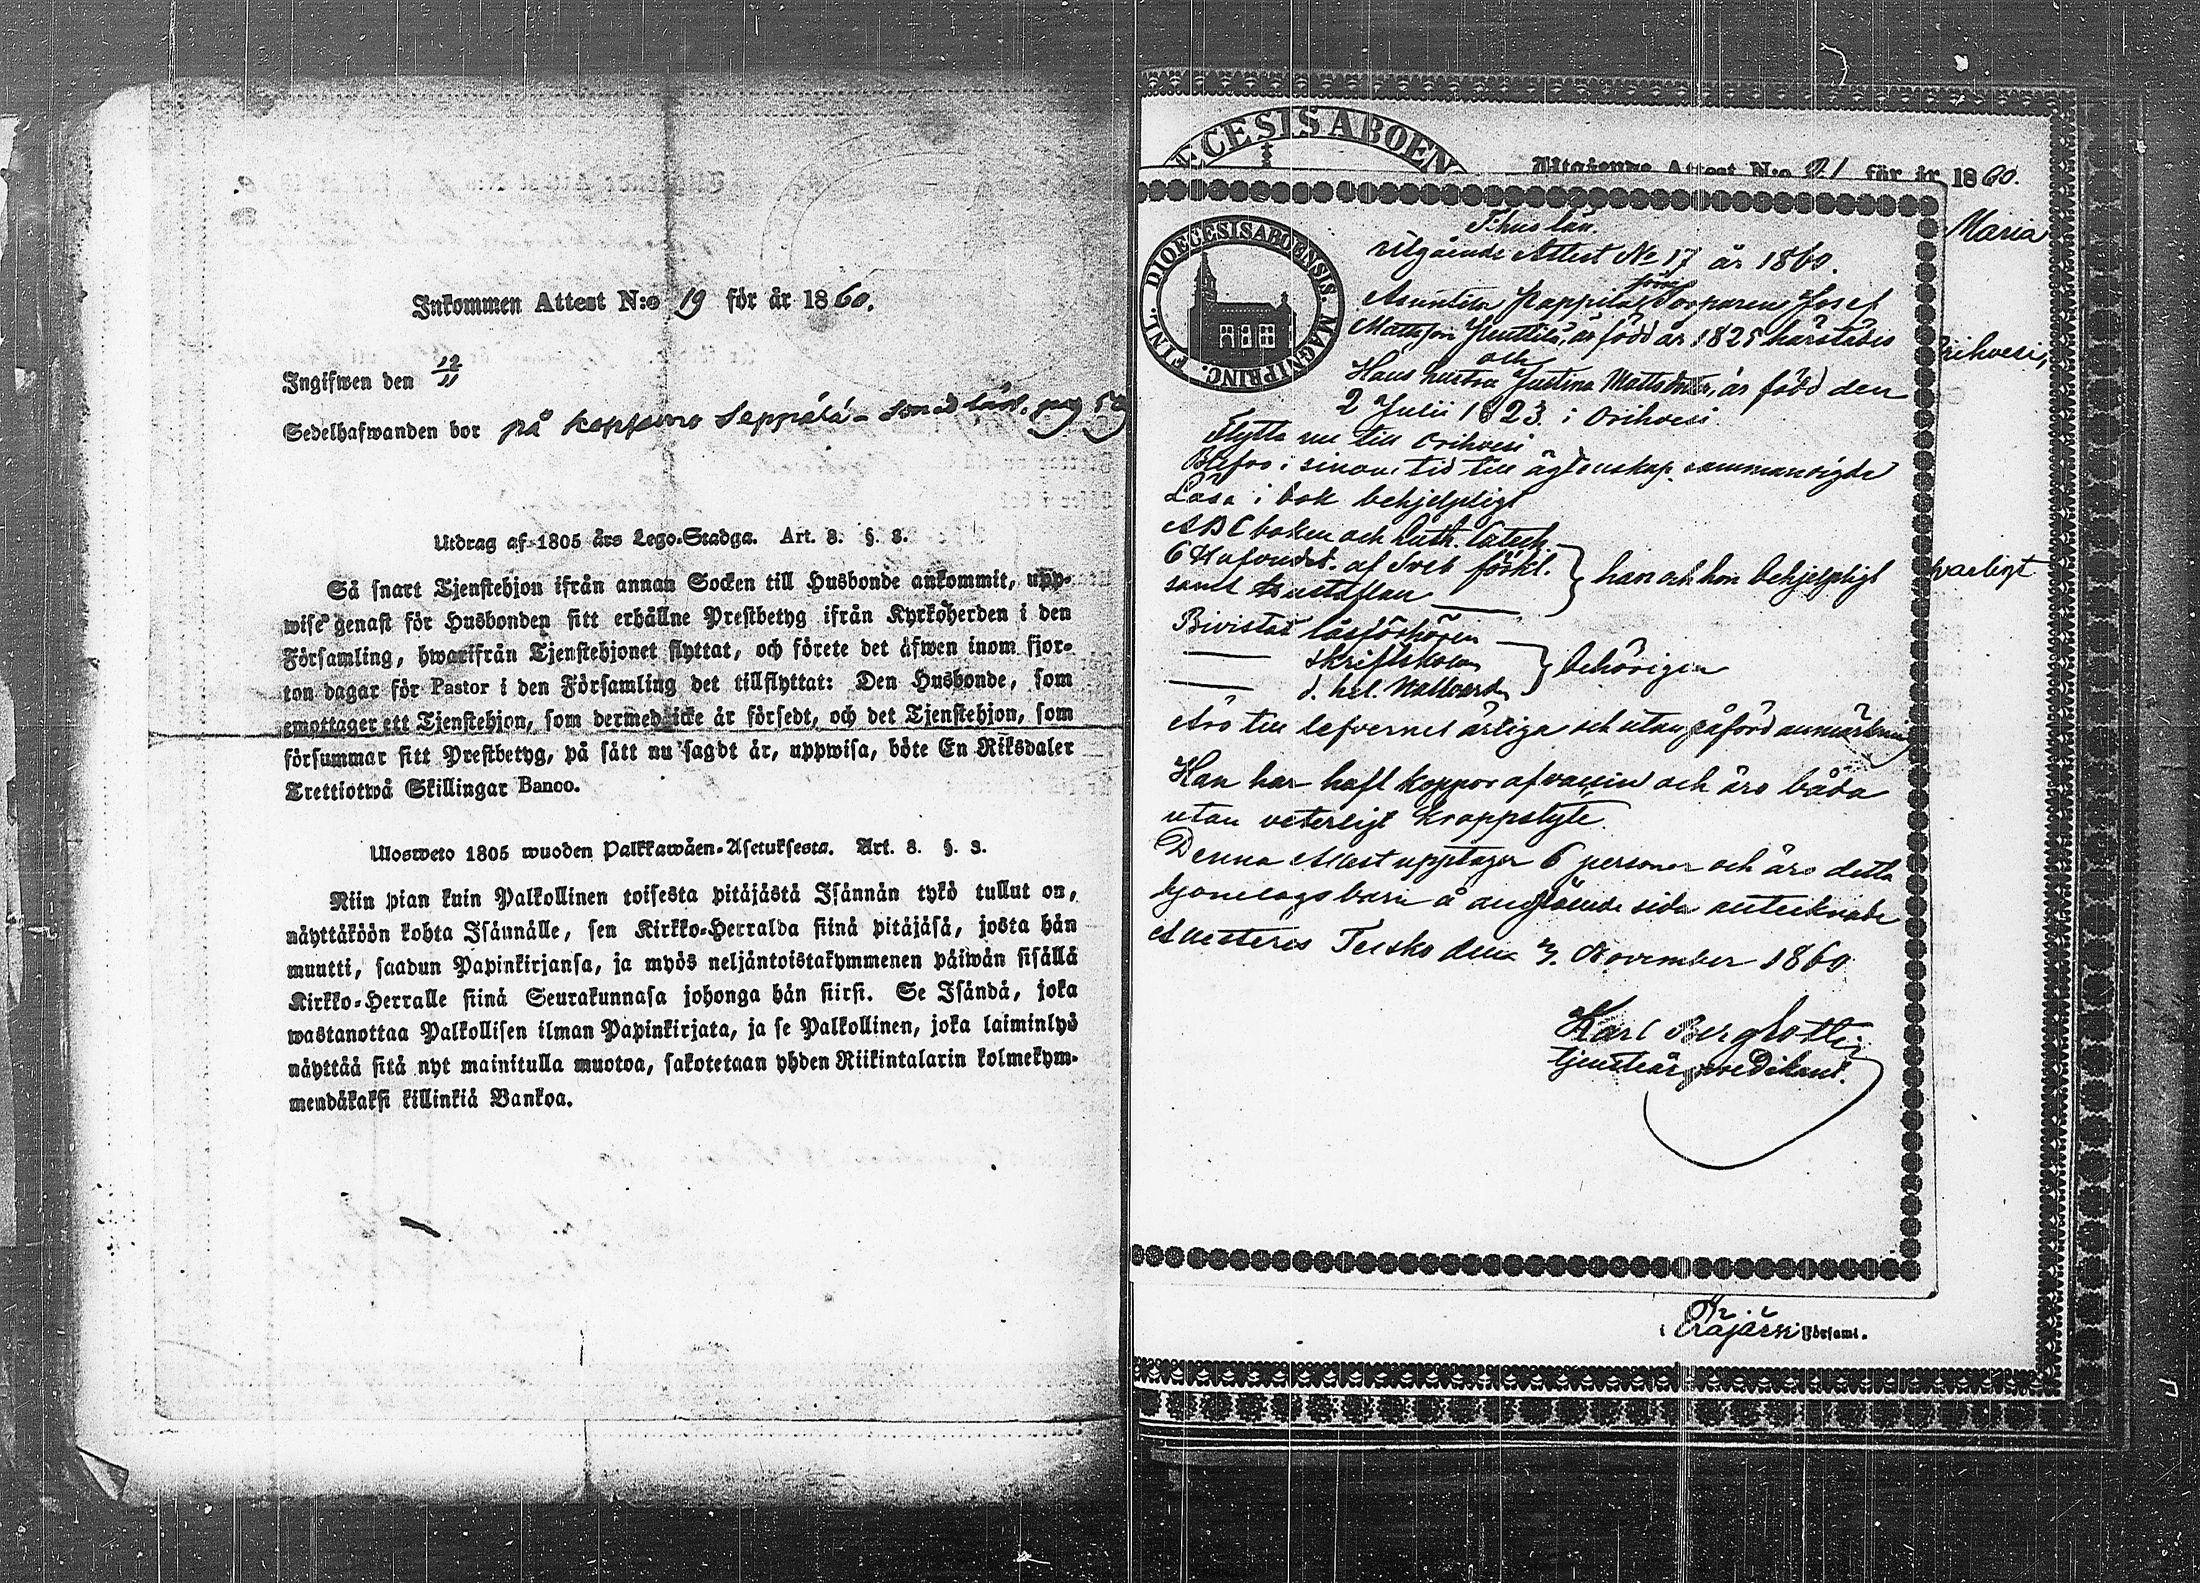 Inkommen Attest N:o 19 för år 1860.
Ingifwen den 12/11
Sedelhafwanden bor på Seppälä
Utdrag af 1805 års Lego-Stadga. Art. 8. §. 3.
Så snart Tjenstehjon ifrån annan Socken till Husbonde ankommit, upp-
wise genast för Husbonden sitt erhållne Prestbetyg ifrån Kyrkoherden i den
Församling, hwarifrån Tjenstehjonet flyttat, och förete det äfwen inom fjor-
ton dagar för Pastor i den Församling det tillflyttat: Den Husbonde, som
emottager ett Tjenstehjon, som dermed icke är försedt, och det Tjenstehjon, som
försummar sitt Prestbetyg, på sätt nu sagdt är, uppwisa, böte En Riksdaler
Trettiotwå Skillingar Banco.
Ulosweto 1805 wuoden Palkkawäen-Asetuksesta. Art. 8. §. 3.
Niin pian kuin Palkollinen toisesta pitäjästä Isännän tykö tullut on,
näyttäköön kohta Isännälle, sen Kirkko-Herralda siinä pitäjäsä, josta hän
muutti, saadun Papinkirjansa, ja myös neljäntoistakymmenen päiwän sisällä
Kirkko-Herralle siinä Seurakunnasa johonga hän siirsi. Se Isändä, joka
wastanottaa Palkollisen ilman Papinkirjata, ja se Palkollinen, joka laiminlyö
näyttää sitä nyt mainitulla muotoa, sakotetaan yhden Riikintalarin kolmekym-
mendäkaksi killinkiä Bankoa.
ŒCESIS ABOEN
Utgående Attest N:o 21 för år 1860.
Maria
Orihvesi,
svarligt
DIOECESIS ABOENSIS. MAGNI PRINC. FINL.
T:hus län.
Utgående Attest No 17 år 1860.
förre
Torparen Josef
Mattsson Junttila, är född år 1825 härstädes
och
Hans hustru Justina Mattsdotter, är född den
2 Julii 1823. i Orihvesi
Flytta nu till Orihvesi
Blefvo i sinom tid till ägtenskap sammanvigde
Läsa i bok behjelpligt
ABC boken och Luth. Catech.
6 Hufvudst. af Sveb förkl. han och hon behjelpligt
samt hustaflan
Bivistat läsförhören
skriftskolan behörigen
d. hel. Nattvard
Äro till lefvernet ärliga och utan påförd anmärkning
Han har haft koppor af vaccin och äro båda
utan veterligt kroppslyte.
Denna Attest upptager 6 personer och äro detta
hjonelags barn å angående sida antecknade
Attesteras Teisko den 7. November 1860
Karl Bergh
tjensteär. predikant.
i Eräjärvi Församl.